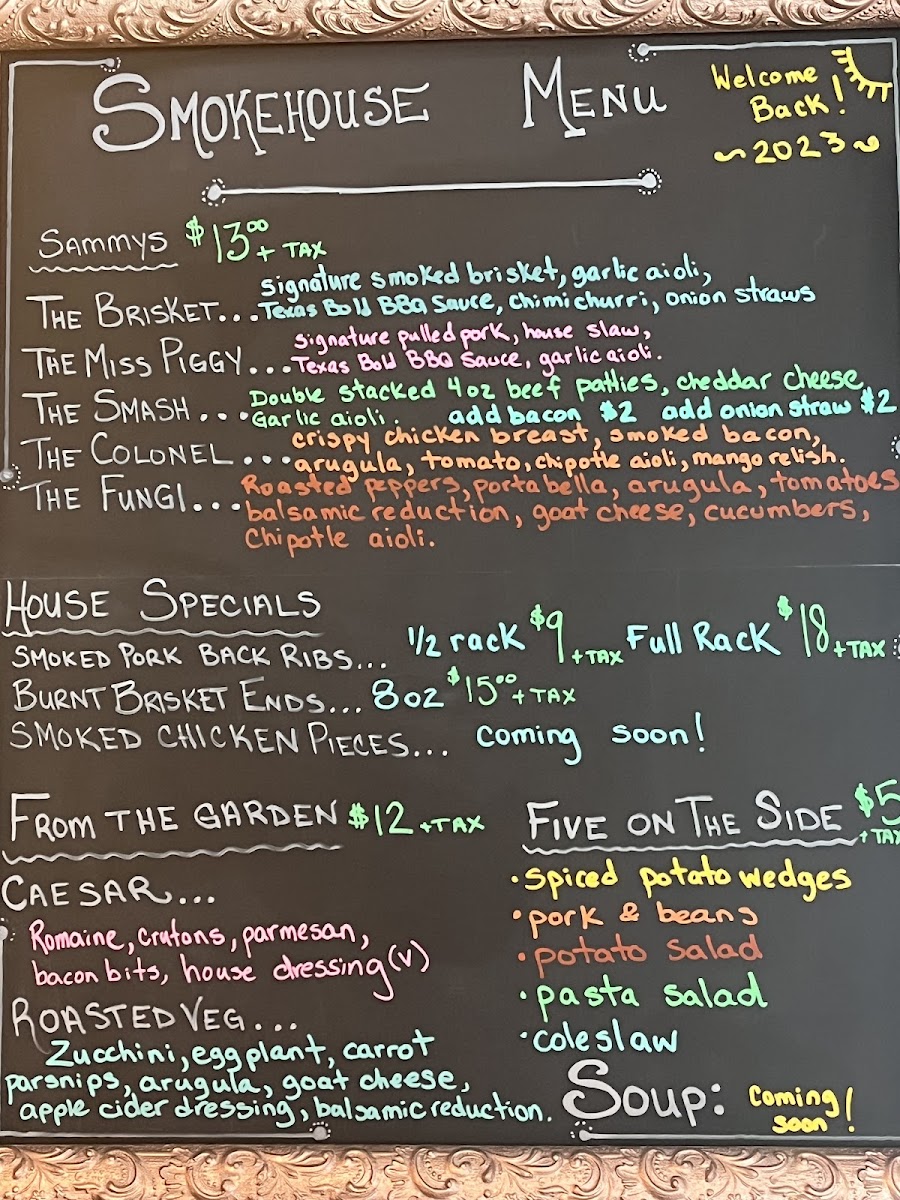 SMOKEHOUSE MENU
Welcome
Back!
~2023~
SAMMYS $13.00 + TAX
THE BRISKET... signature smoked brisket, garlic aioli,
Texas Bold BBQ Sauce, chimichurri, onion straws
THE MISS PIGGY... signature pulled pork, house slaw,
Texas Bold BBQ Sauce, garlic aioli.
THE SMASH... Double stacked 4oz beef patties, cheddar cheese
Garlic aioli. add bacon $2 add onion straw $2
THE COLONEL... crispy chicken breast, smoked bacon,
arugula, tomato, chipotle aioli, mango relish.
THE FUNGI... Roasted peppers, portabella, arugula, tomatoes
balsamic reduction, goat cheese, cucumbers,
Chipotle aioli.
HOUSE SPECIALS
SMOKED PORK BACK RIBS... 1/2 rack $9 +TAX Full Rack $18 +TAX
BURNT BRISKET ENDS... 8oz $15.00 + TAX
SMOKED CHICKEN PIECES... Coming soon!
FROM THE GARDEN $12 +TAX
CAESAR...
Romaine, crutons, parmesan,
bacon bits, house dressing (v)
ROASTED VEG...
Zucchini, eggplant, carrot
parsnips, arugula, goat cheese,
apple cider dressing, balsamic reduction.
FIVE ON THE SIDE $5 + TAX
• spiced potato wedges
• pork & beans
• potato salad
• pasta salad
• coleslaw
SOUP: Coming soon!